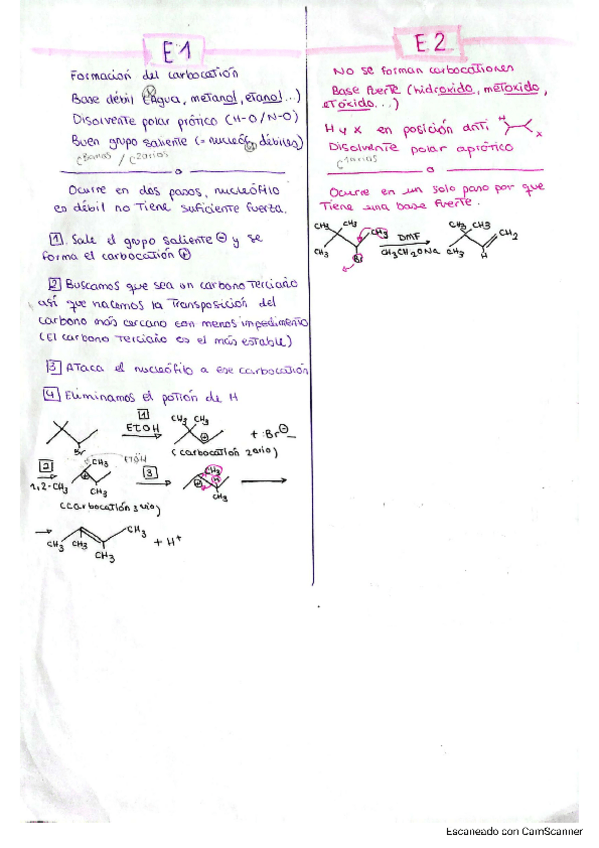 E1
Formación del carbocatión
Base débil (Agua, metanol, etanol...)
Disolvente polar prótico (H-O / N-O)
Buen grupo saliente (= nucleóf débiles)
C3arios / C2arios
Ocurre en dos pasos, nucleófilo
es débil no tiene suficiente fuerza.
1. Sale el grupo saliente ⊖ y se
forma el carbocatión ⊕
2 Buscamos que sea un carbono terciario
así que hacemos la transposición del
carbono más cercano con menos impedimento
(El carbono terciario es el más estable)
3 Ataca el nucleófilo a ese carbocatión
4 Eliminamos el potión de H
1
EtOH
Br
CH3 CH3
⊕
+ :Br⊖
(carbocatión 2ario)
2
1,2-CH3
CH3
⊕
CH3
EtÖH
(carbocatión 3ario)
3
CH3
⊕
H
CH3
CH3 CH3 CH3 CH3
+ H+
E2
No se forman carbocationes
Base fuerte (hidroxido, metoxido,
etoxido...)
H y X en posición anti
H
X
Disolvente polar aprótico
C1arios
Ocurre en un solo paso por que
tiene una base fuerte.
CH3 CH3
CH3
CH3
Br
DMF
CH3CH2ONa
CH3 CH3
CH3
CH2
H
Escaneado con CamScanner